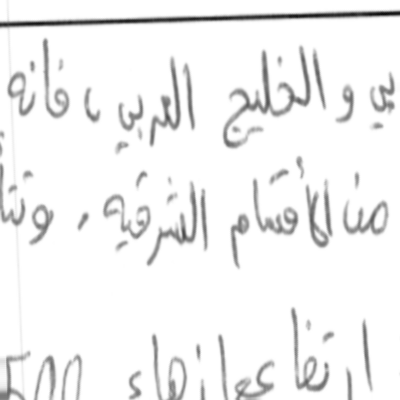 بي والخليج العربي، فانه
من الأقسام الشرقيه، وتتأ
ارتفاعها زهاء 500